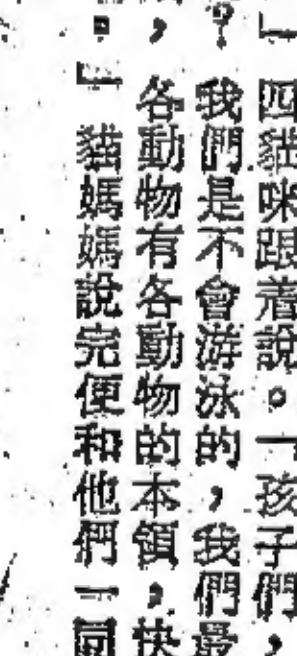 」四貓咪跟着說。「孩子們，
？我們是不會游泳的，我們最
，各動物有各動物的本領，快
。」貓媽媽說完便和他們一同